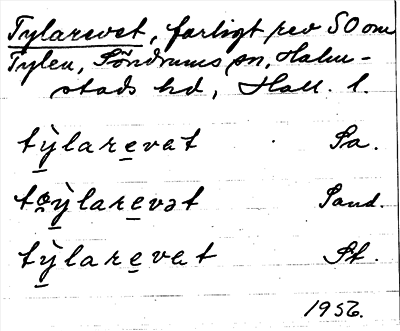 Tylarevet, farligt rev SO om
Tylen, Söndrums sn, Halm-
stads hd, Hall. l.
tỳ̱lare̱vat Sa.
to̱ỳ̱lare̱vət Sand.
tỳ̱lare̱vet St.
1956.